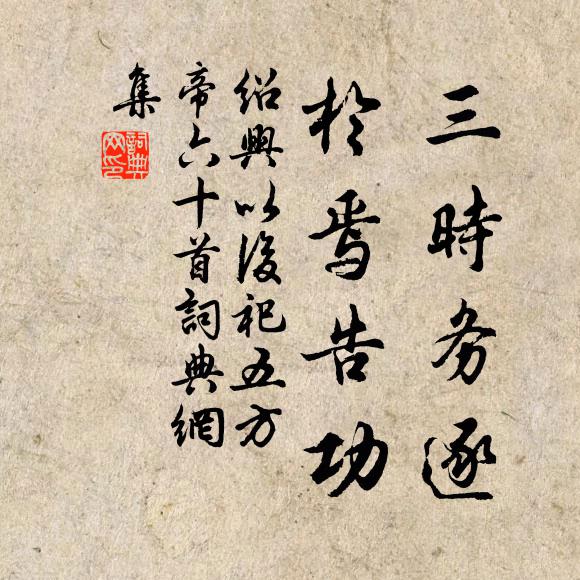 三時务逐
於焉告功
紹興以後祀五方
帝六十首詞典網
集
詞典
网印